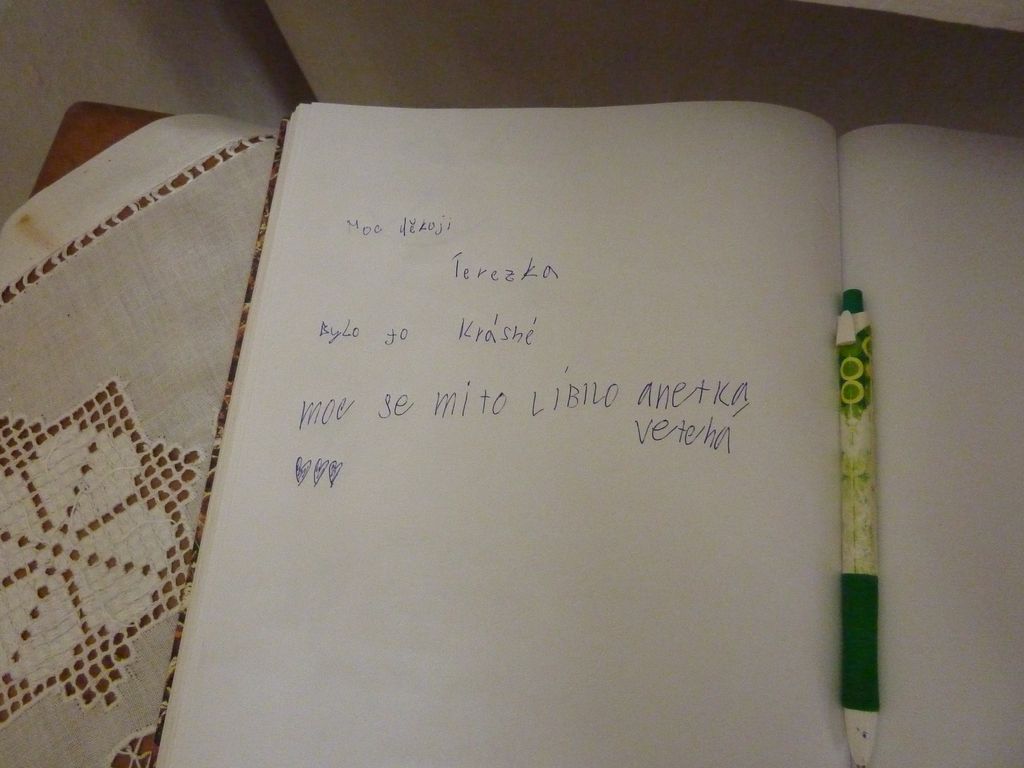 Moc děkuji
Terezka
Bylo to Krásné
moc se mi to LÍBILO anetka
vetchá